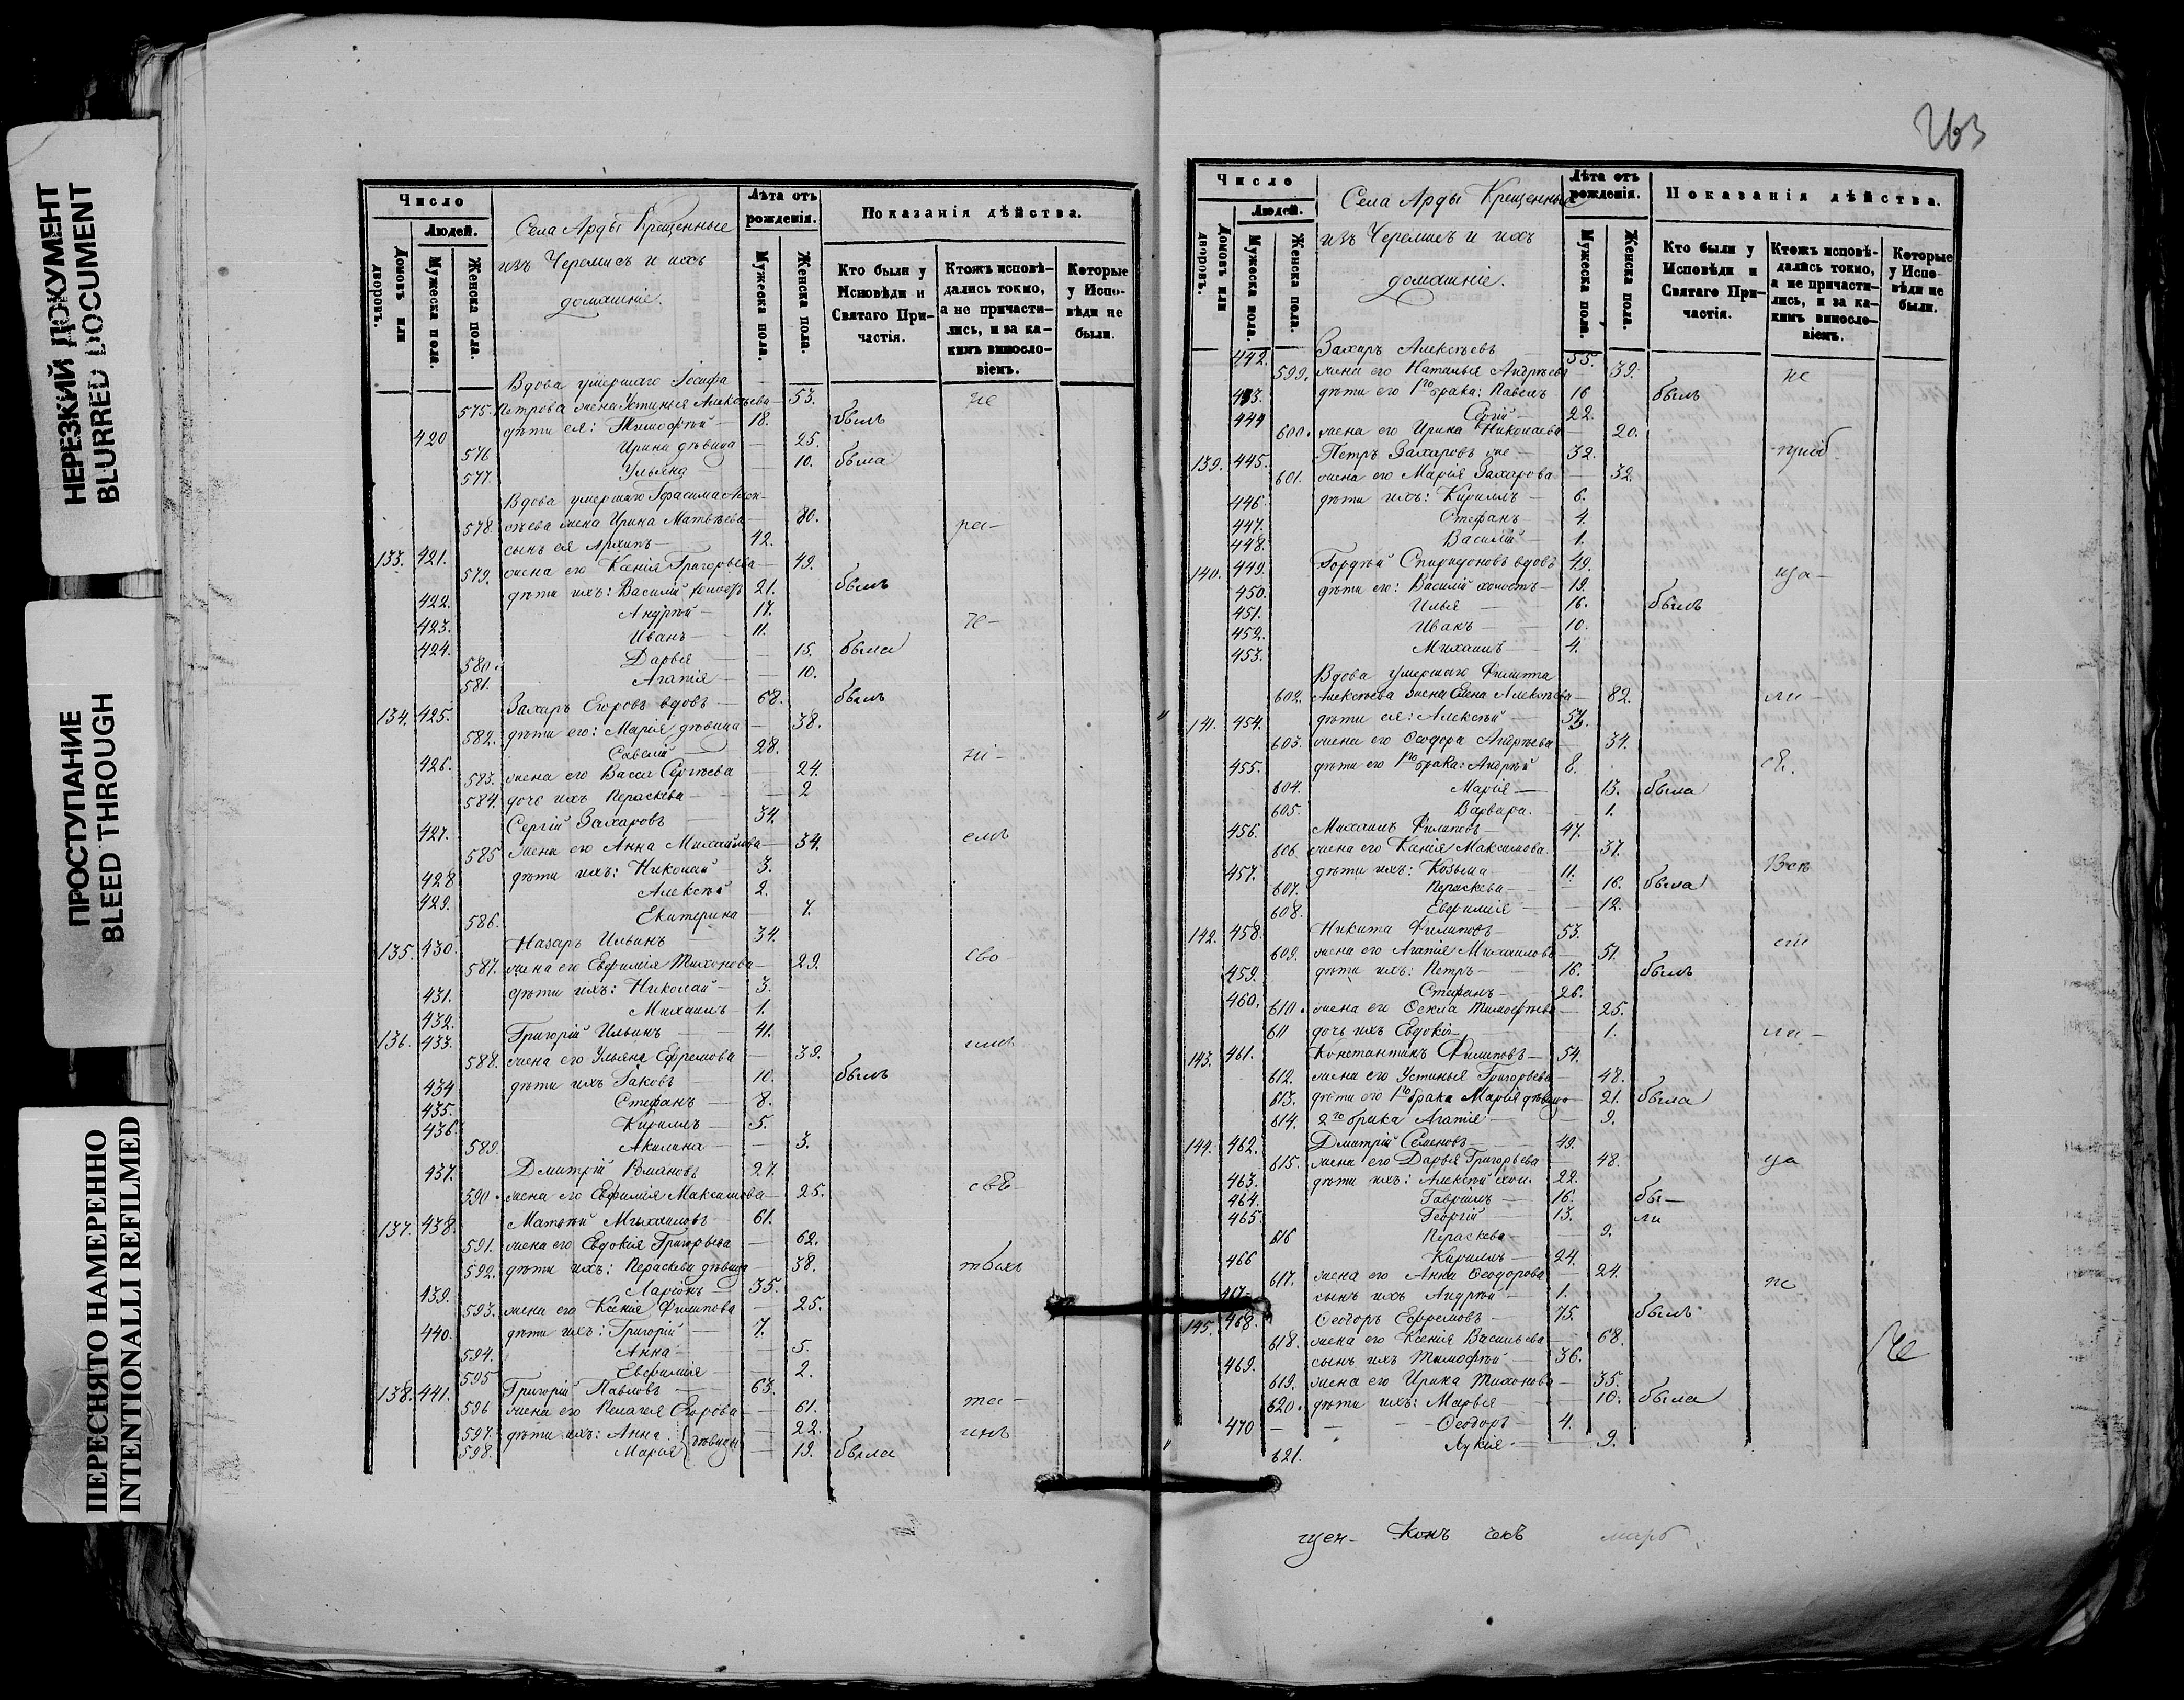 НЕРЕЗКИЙ ДОКУМЕНТ
BLURRED DOCUMENT
ПРОСТУПАНИЕ
BLEED THROUGH
ПЕРЕСНЯТО НАМЕРЕННО
INTENTIONALLI REFILMED
Число
Людей.
Домовъ или дворовъ.
Мужеска пола.
Женска пола.
Села Арды Крещенные
изъ Черемисъ и ихъ
домашніе.
Лѣта отъ рожденія.
Мужеска пола.
Женска пола.
Показанія дѣйства.
Кто были у Исповѣди и Святаго Причастія.
Ктожъ исповѣ-
дались токмо,
а не причасти-
лись, и за ка-
кимъ виносло-
віемъ.
Которые
у Испо-
вѣди не
были.
Вдова умершаго Іосифа
575. Петрова жена Устинья Алексѣева 53. не
420 дѣти ея: Тимофѣй 18. былъ
576 Ирина дѣвица 25.
577. Ульяна 10. была
Вдова умершаго Герасима Алек-
578. сѣева жена Ирина Матвѣева 80. ра-
133. 421. сынъ ея Архипъ 42.
579. жена его Ксенія Григорьева 49.
422. дѣти ихъ: Василій холостъ 21. былъ
423. Андрей 17. че-
424. Иванъ 11.
580. Дарья 15. была
581. Агапія 10.
134. 425. Захаръ Егоровъ вдовъ 68. былъ
582. дѣти его: Марія дѣвица 38.
426. Савелій 28. ні-
583. жена его Васса Сергѣева 24.
584. дочь ихъ Параскева 2
427. Сергій Захаровъ 34.
585 жена его Анна Михайлова 34. емъ
428 дѣти ихъ: Николай 3.
429. Алексѣй 2.
586. Екатерина 7.
135. 430. Назаръ Ильинъ 34.
587. жена его Евфимія Тихонова 29. сво
431. дѣти ихъ: Николай 3.
432. Михаилъ 1.
136. 433. Григорій Ильинъ 41.
588. жена его Ульяна Ефремова 39. имъ
434 дѣти ихъ Іаковъ 10. былъ
435. Стефанъ 8.
436. Кириллъ 5.
589. Акилина 3.
437. Дмитрій Романовъ 27.
590. жена его Евфимія Максимова 25. свя-
137. 438. Матвѣй Михаиловъ 61.
591. жена его Евдокія Григорьева 62.
592. дѣти ихъ: Параскева дѣвица 38. тыхъ
439. Ларіонъ 35.
593. жена его Ксенія Филипова 25.
440. дѣти ихъ: Григорій 7.
594. Анна 5.
595 Евфимія 2.
138. 441. Григорій Павловъ 63.
596 жена его Пелагея Егорова 61. та-
597. дѣти ихъ: Анна 22. инъ
598. Марія дѣвицы 19. была
263
Число
Людей.
Домовъ или дворовъ.
Мужеска пола.
Женска пола.
Села Арды Крещенные
изъ Черемисъ и ихъ
домашніе.
Лѣта отъ рожденія.
Мужеска пола.
Женска пола.
Показанія дѣйства.
Кто были у Исповѣди и Святаго Причастія.
Ктожъ исповѣ-
дались токмо,
а не причасти-
лись, и за ка-
кимъ виносло-
віемъ.
Которые
у Испо-
вѣди не
были.
442. Захаръ Алексѣевъ 55.
599. жена его Наталья Андреева 39. не
443. дѣти его 1го брака: Павелъ 16 былъ
444 Сергій 22.
600. жена его Ирина Николаева 20.
139. 445. Петръ Захаровъ же 32. приоб
601. жена его Марія Захарова 32.
446. дѣти ихъ: Кириллъ 6.
447. Стефанъ 4.
448. Василій 1.
140. 449. Гордѣй Спиридоновъ вдовъ 49. ща-
450. дѣти его: Василій холостъ 19.
451. Илья 16. былъ
452. Иванъ 10.
453. Михаилъ 4.
Вдова умершаго Филиппа
602. Алексѣева жена Елена Алексѣева 82. ли-
141. 454. дѣти ея: Алексѣй
603. жена его Ѳеодора Андреева 34.
455. дѣти его 1го брака: Андрей 8. ся.
604. Марія 13. была
605. Варвара. 1.
456. Михаилъ Филиповъ 47.
606 жена его Ксенія Максимова. 37.
457. дѣти ихъ: Козьма 11. Всѣ
607. Параскева 16. была
608. Евфимія 12.
142. 458. Никита Филиповъ 53.
609. жена его Агапія Михаилова 51.
459. дѣти ихъ: Петръ 16. былъ
460. Стефанъ 26.
610. жена его Ѳекла Тимофѣева 25.
611 дочь ихъ Евдокія 1. ли-
143. 461. Константинъ Филиповъ 54.
612. жена его Устинья Григорьева 48.
613. дѣти его 1го брака Марія дѣвица 21. была
614. 2го брака Агапія 9.
144. 462. Дмитрій Семеновъ 49.
615. жена его Дарья Григорьева 48. ца
463. дѣти ихъ: Алексѣй хол. 22.
464. Гавріилъ 16. бы-
465. Георгій 13. ли
616 Параскева 9.
466 Кириллъ 24.
617. жена его Анна Ѳеодорова 24.
467 сынъ ихъ Андрей 1.
145. 468. Ѳеодоръ Ефремовъ 75. былъ
618. жена его Ксенія Васильева 68.
469. сынъ ихъ Тимофѣй 36.
619. жена его Ирина Тихонова 35.
620. дѣти ихъ: Марья 10. была
470 Ѳеодоръ 4.
621. Лукія 9.
щен-